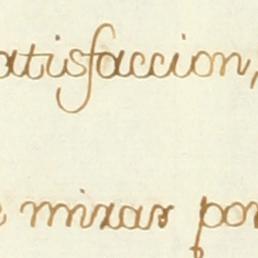 atisfaccion,
mirar por